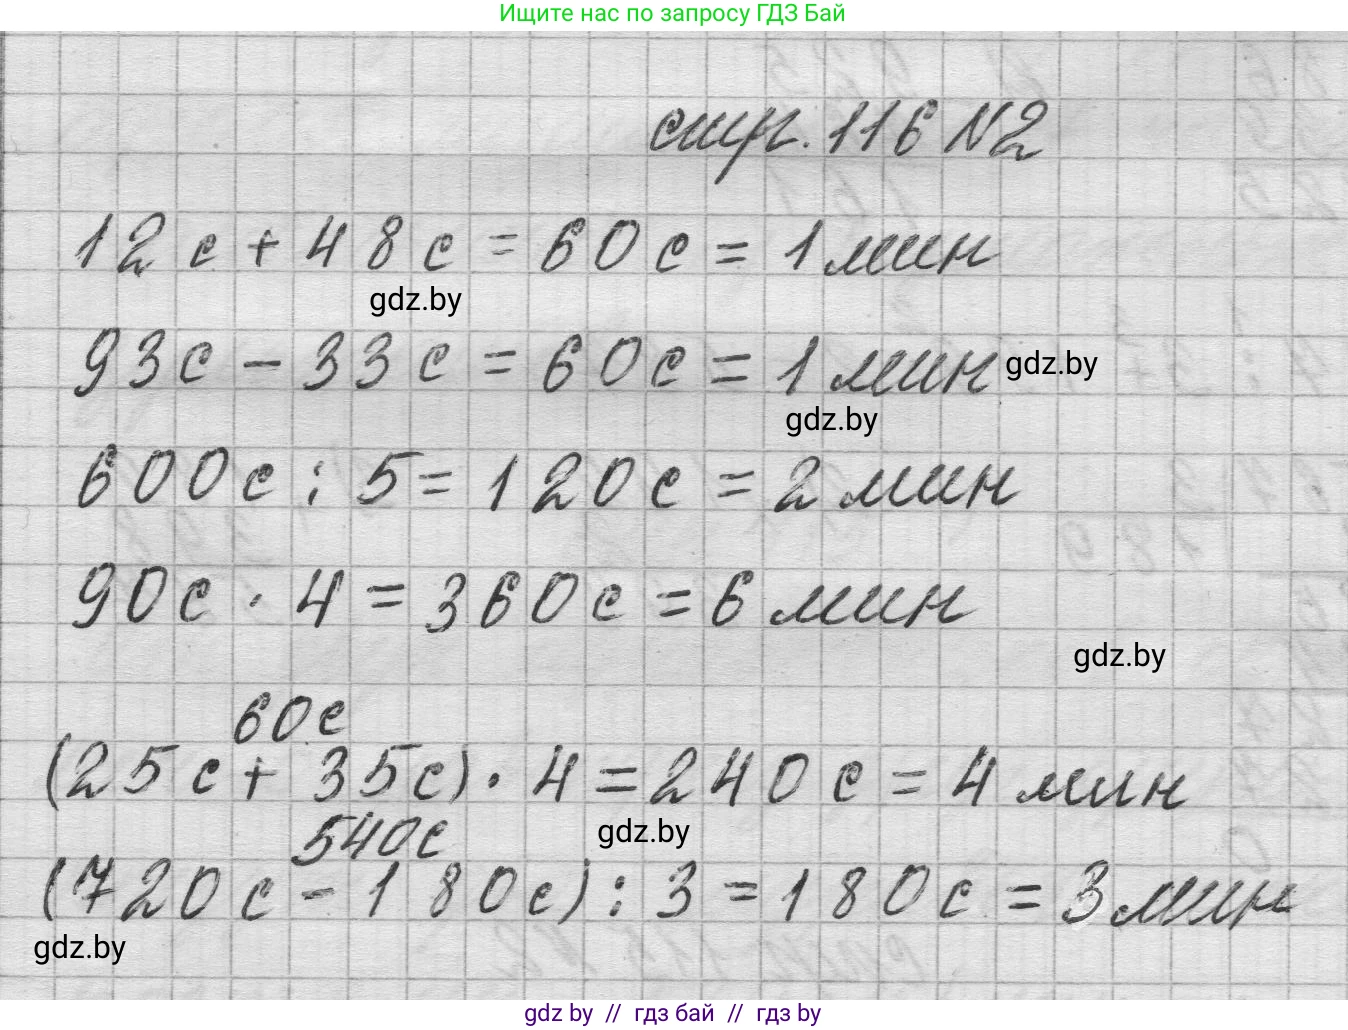 Ищите нас по запросу ГДЗ Бай
стр. 116 N2
12 с + 48 с = 60 с = 1 мин
gdz.by
93 с - 33 с = 60 с = 1 мин gdz.by
gdz.by
600 с : 5 = 120 с = 2 мин
90 с · 4 = 360 с = 6 мин
gdz.by
60 с
(25 с + 35 с) · 4 = 240 с = 4 мин
540 с gdz.by
(720 с - 180 с) : 3 = 180 с = 3 мин
gdz.by
gdz by // гдз бай // гдз by